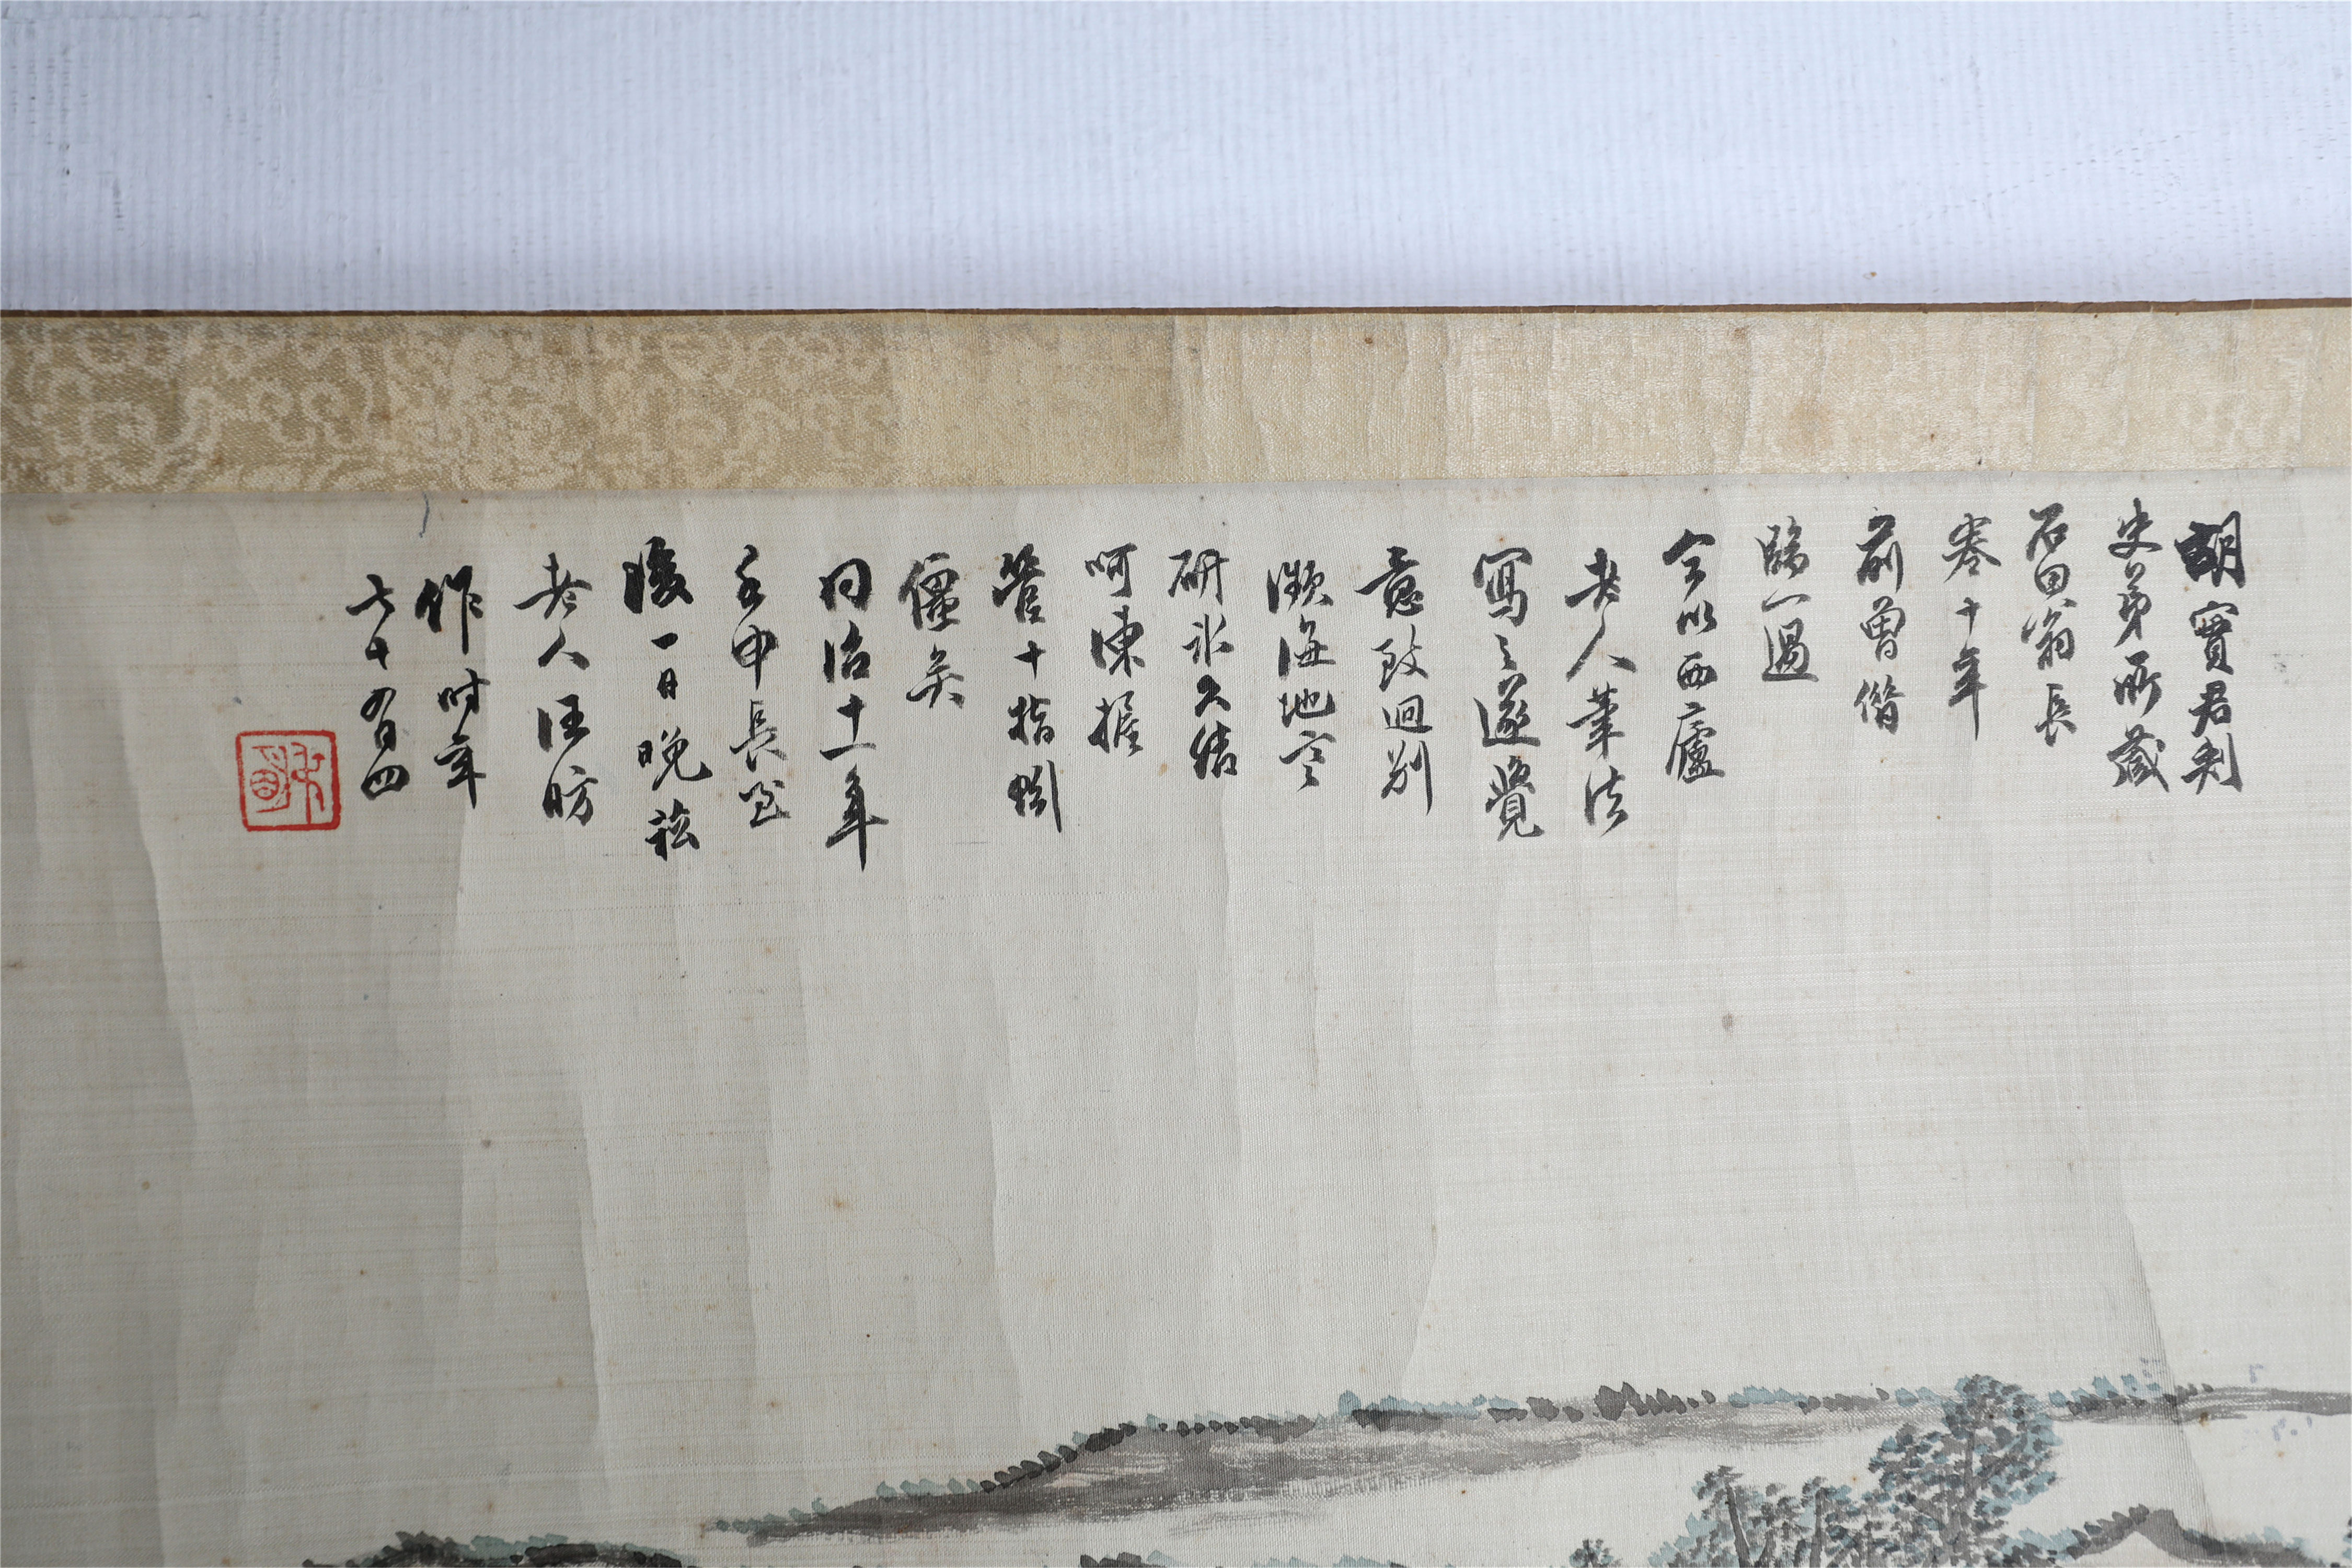 胡寶君刺
史弟所藏
石田翁長
卷十年
前曾借
臨一過
今以西廬
老人筆法
寫之遂覺
意致迥别
瀕海地寒
研氷久結
呵凍握
管十指
僵矣
同治十一年
壬申長至
後一日晚菘
老人汪昉
作時年
七十有四